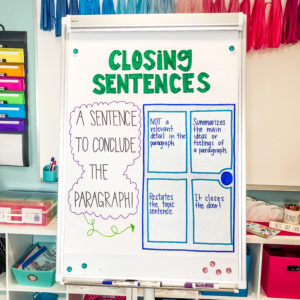 CLOSING
SENTENCES
A SENTENCE
TO CONCLUDE
THE
PARAGRAPH!
NOT a
relevant
detail in the
paragraph.
Summarizes
the main
ideas or
feelings of
a paragraph.
Restates
the topic
sentence.
It closes
the door!